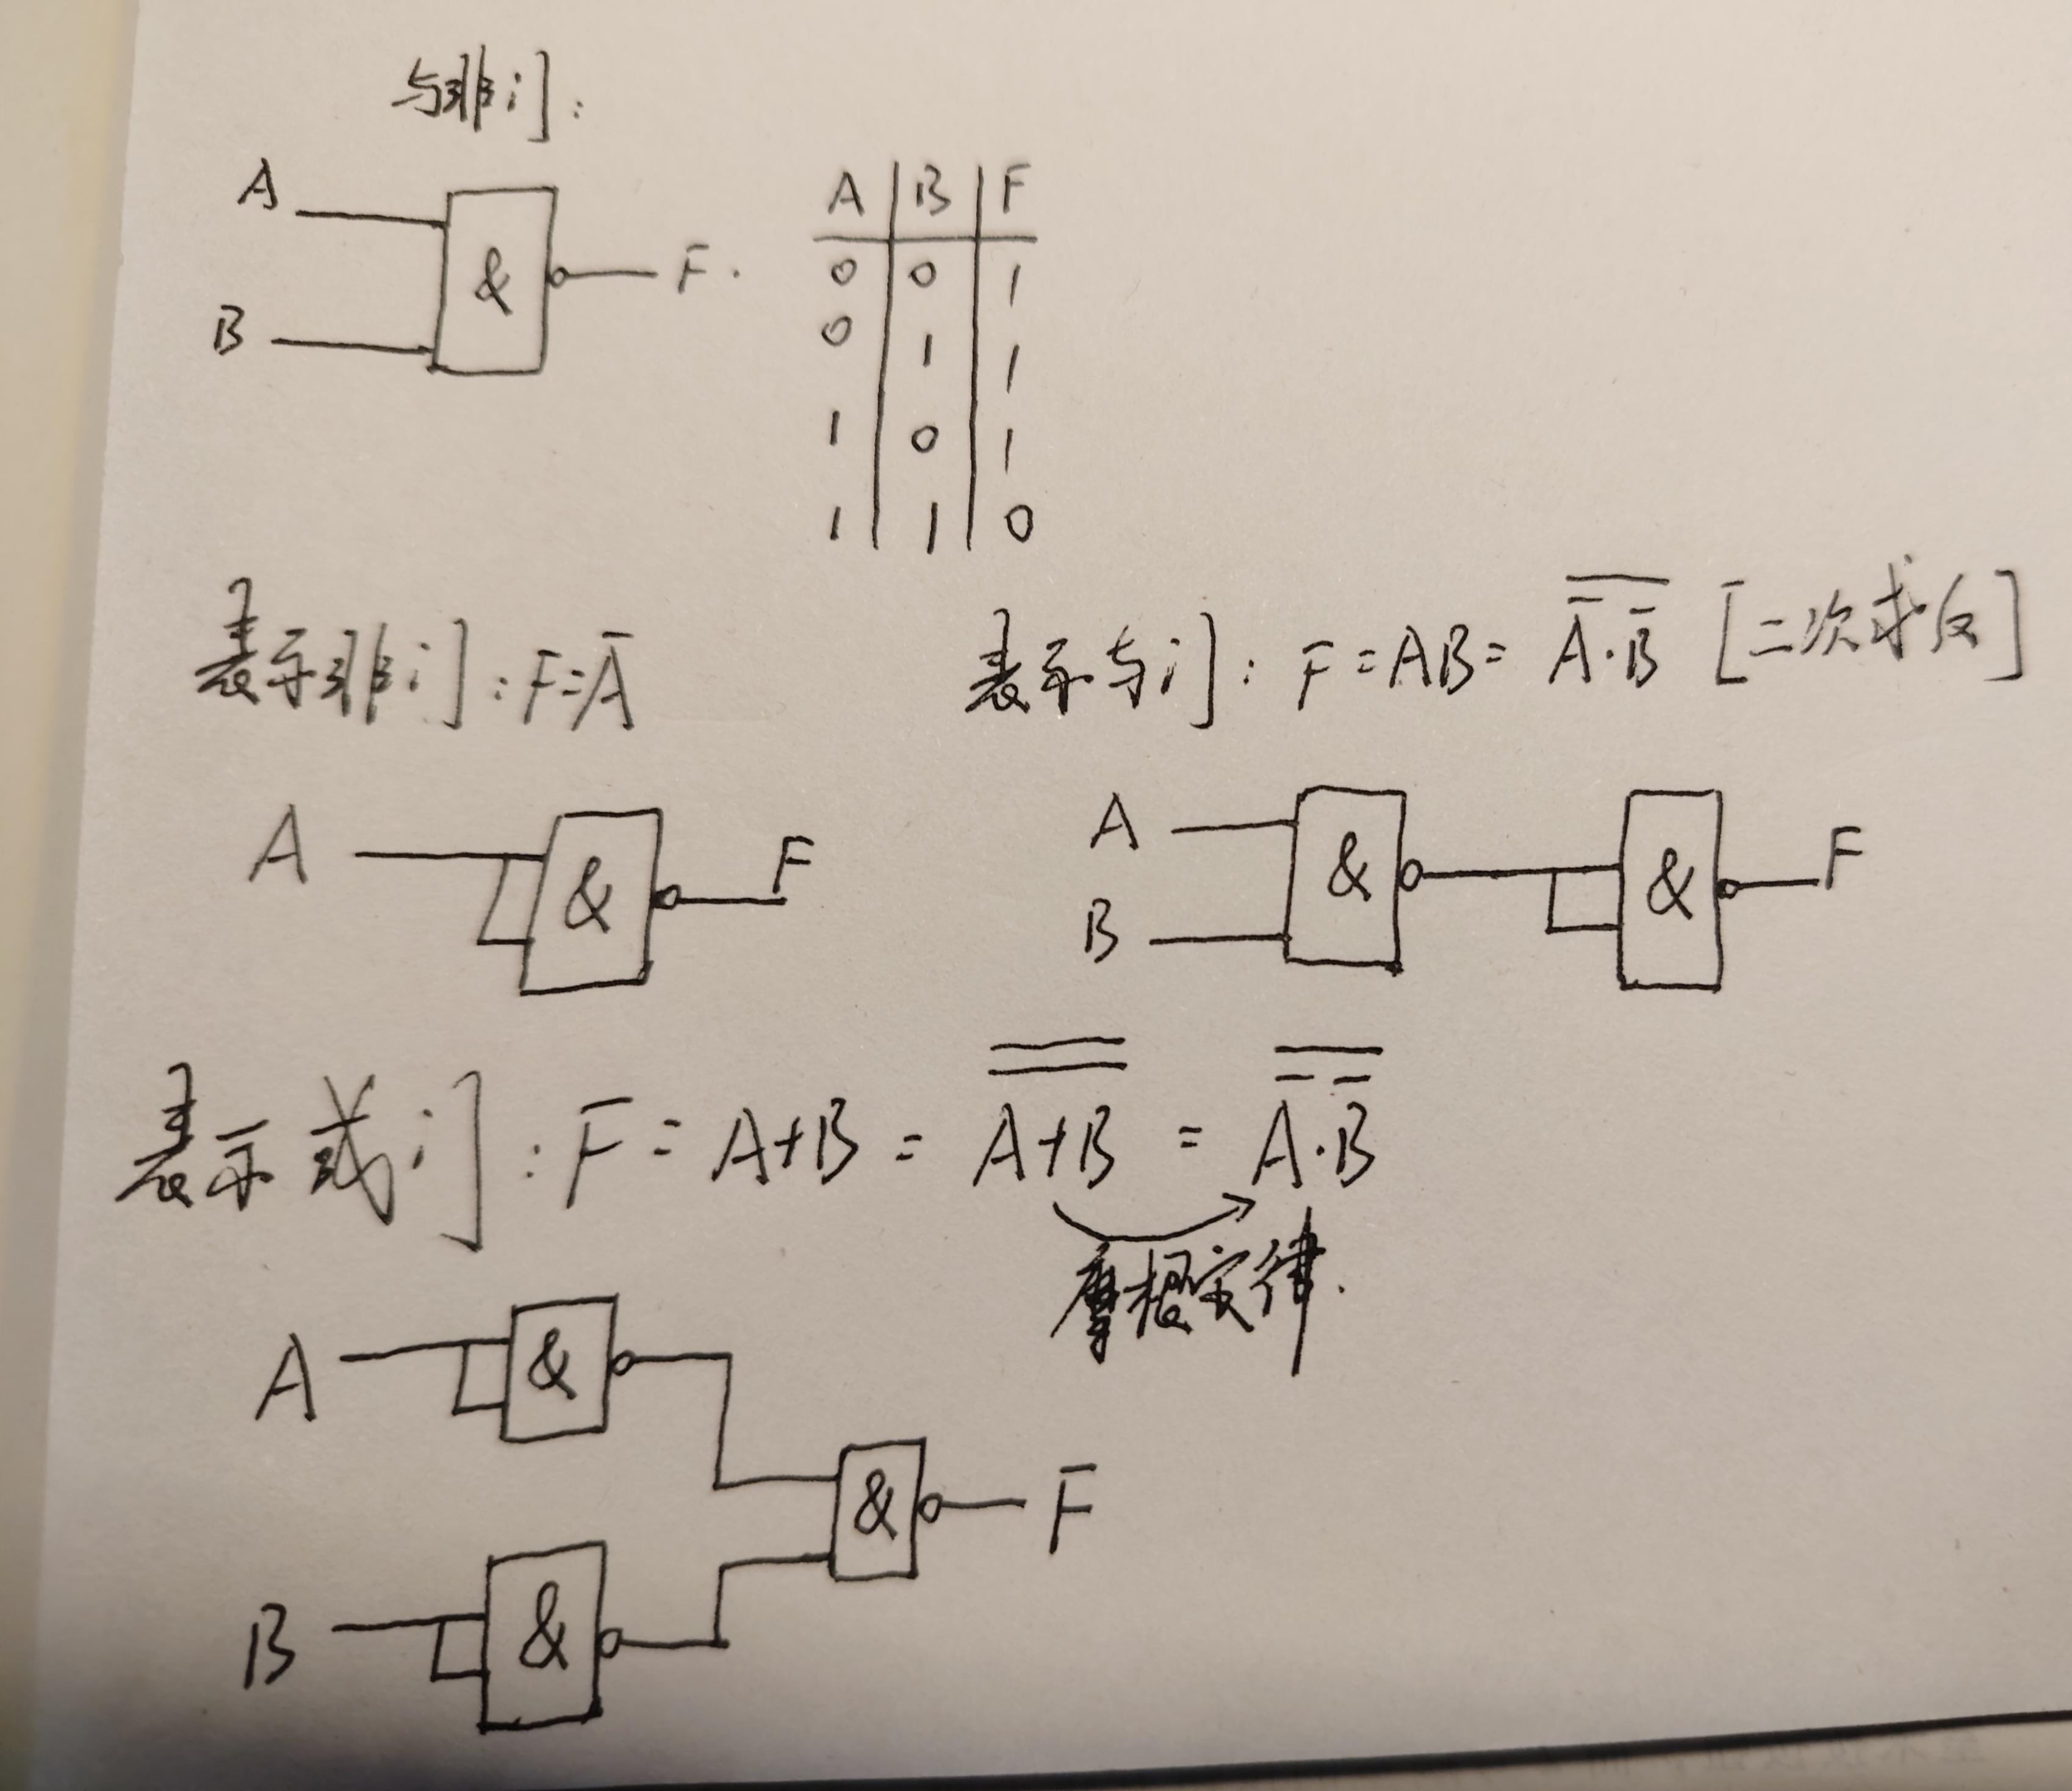 与非门:
A
B
&
F.
A B F
0 0 1
0 1 1
1 0 1
1 1 0
表示非门: F=A̅
A
&
F
表示与门: F=AB= \overline{\overline{A}·\overline{B}} [二次求反]
A
B
&
&
F
表示或门: F = A+B = \overline{\overline{A+B}} = \overline{\overline{A}·\overline{B}}
摩根定律.
A
&
&
F
B
&